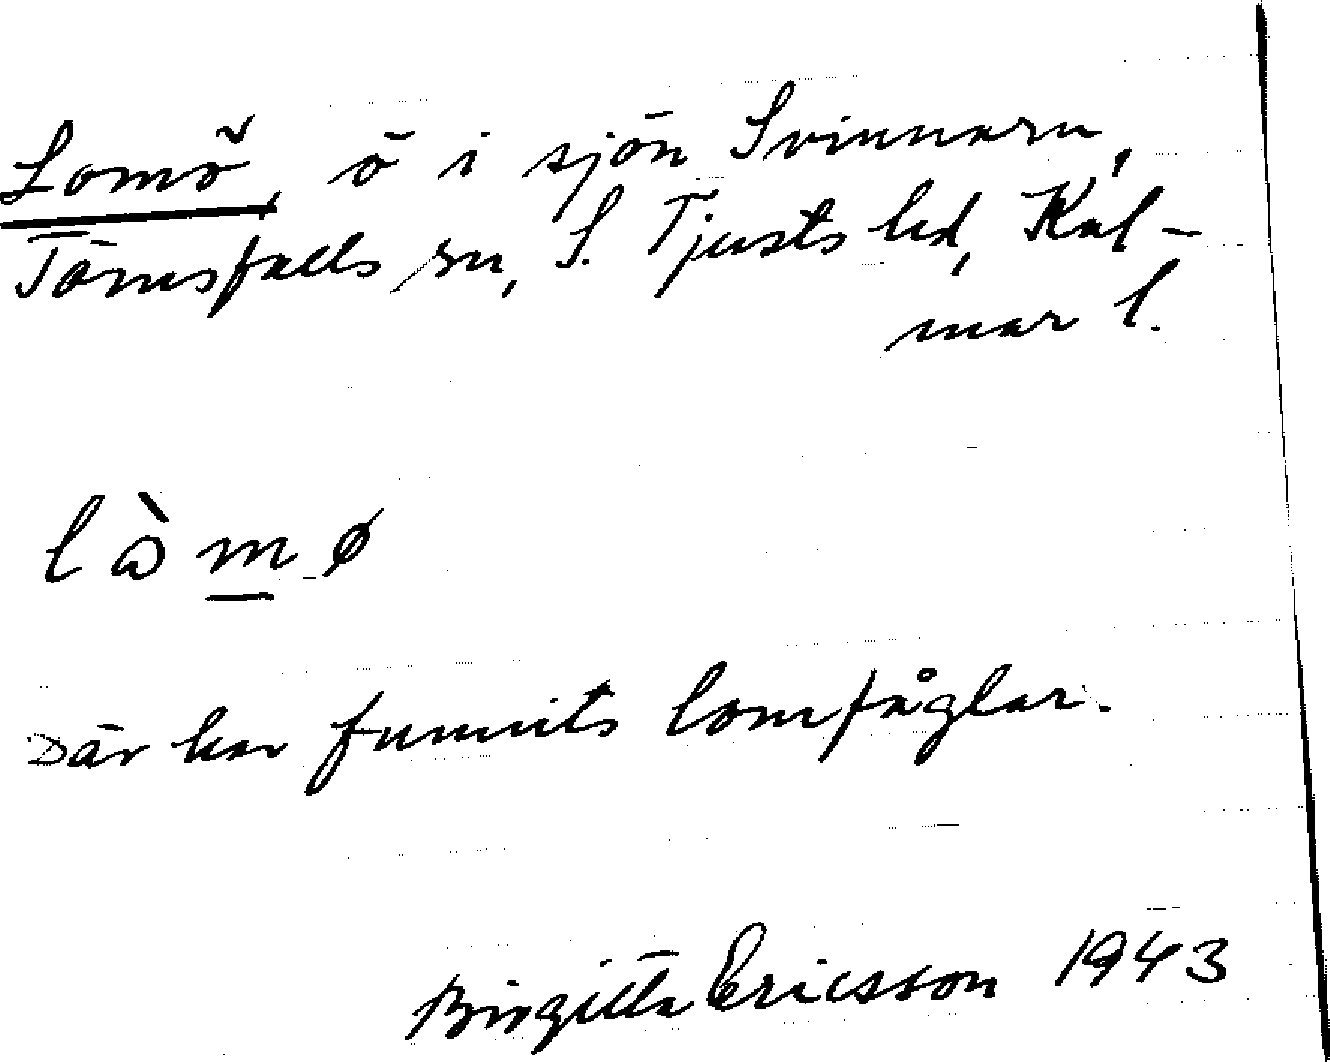 Lomö, ö i sjön Svinnaren,
Törnsfalls sn, S. Tjusts hd, Kal-
mar l.
lòmø
Där har funnits lomfåglar.
Birgitta Ericsson 1943